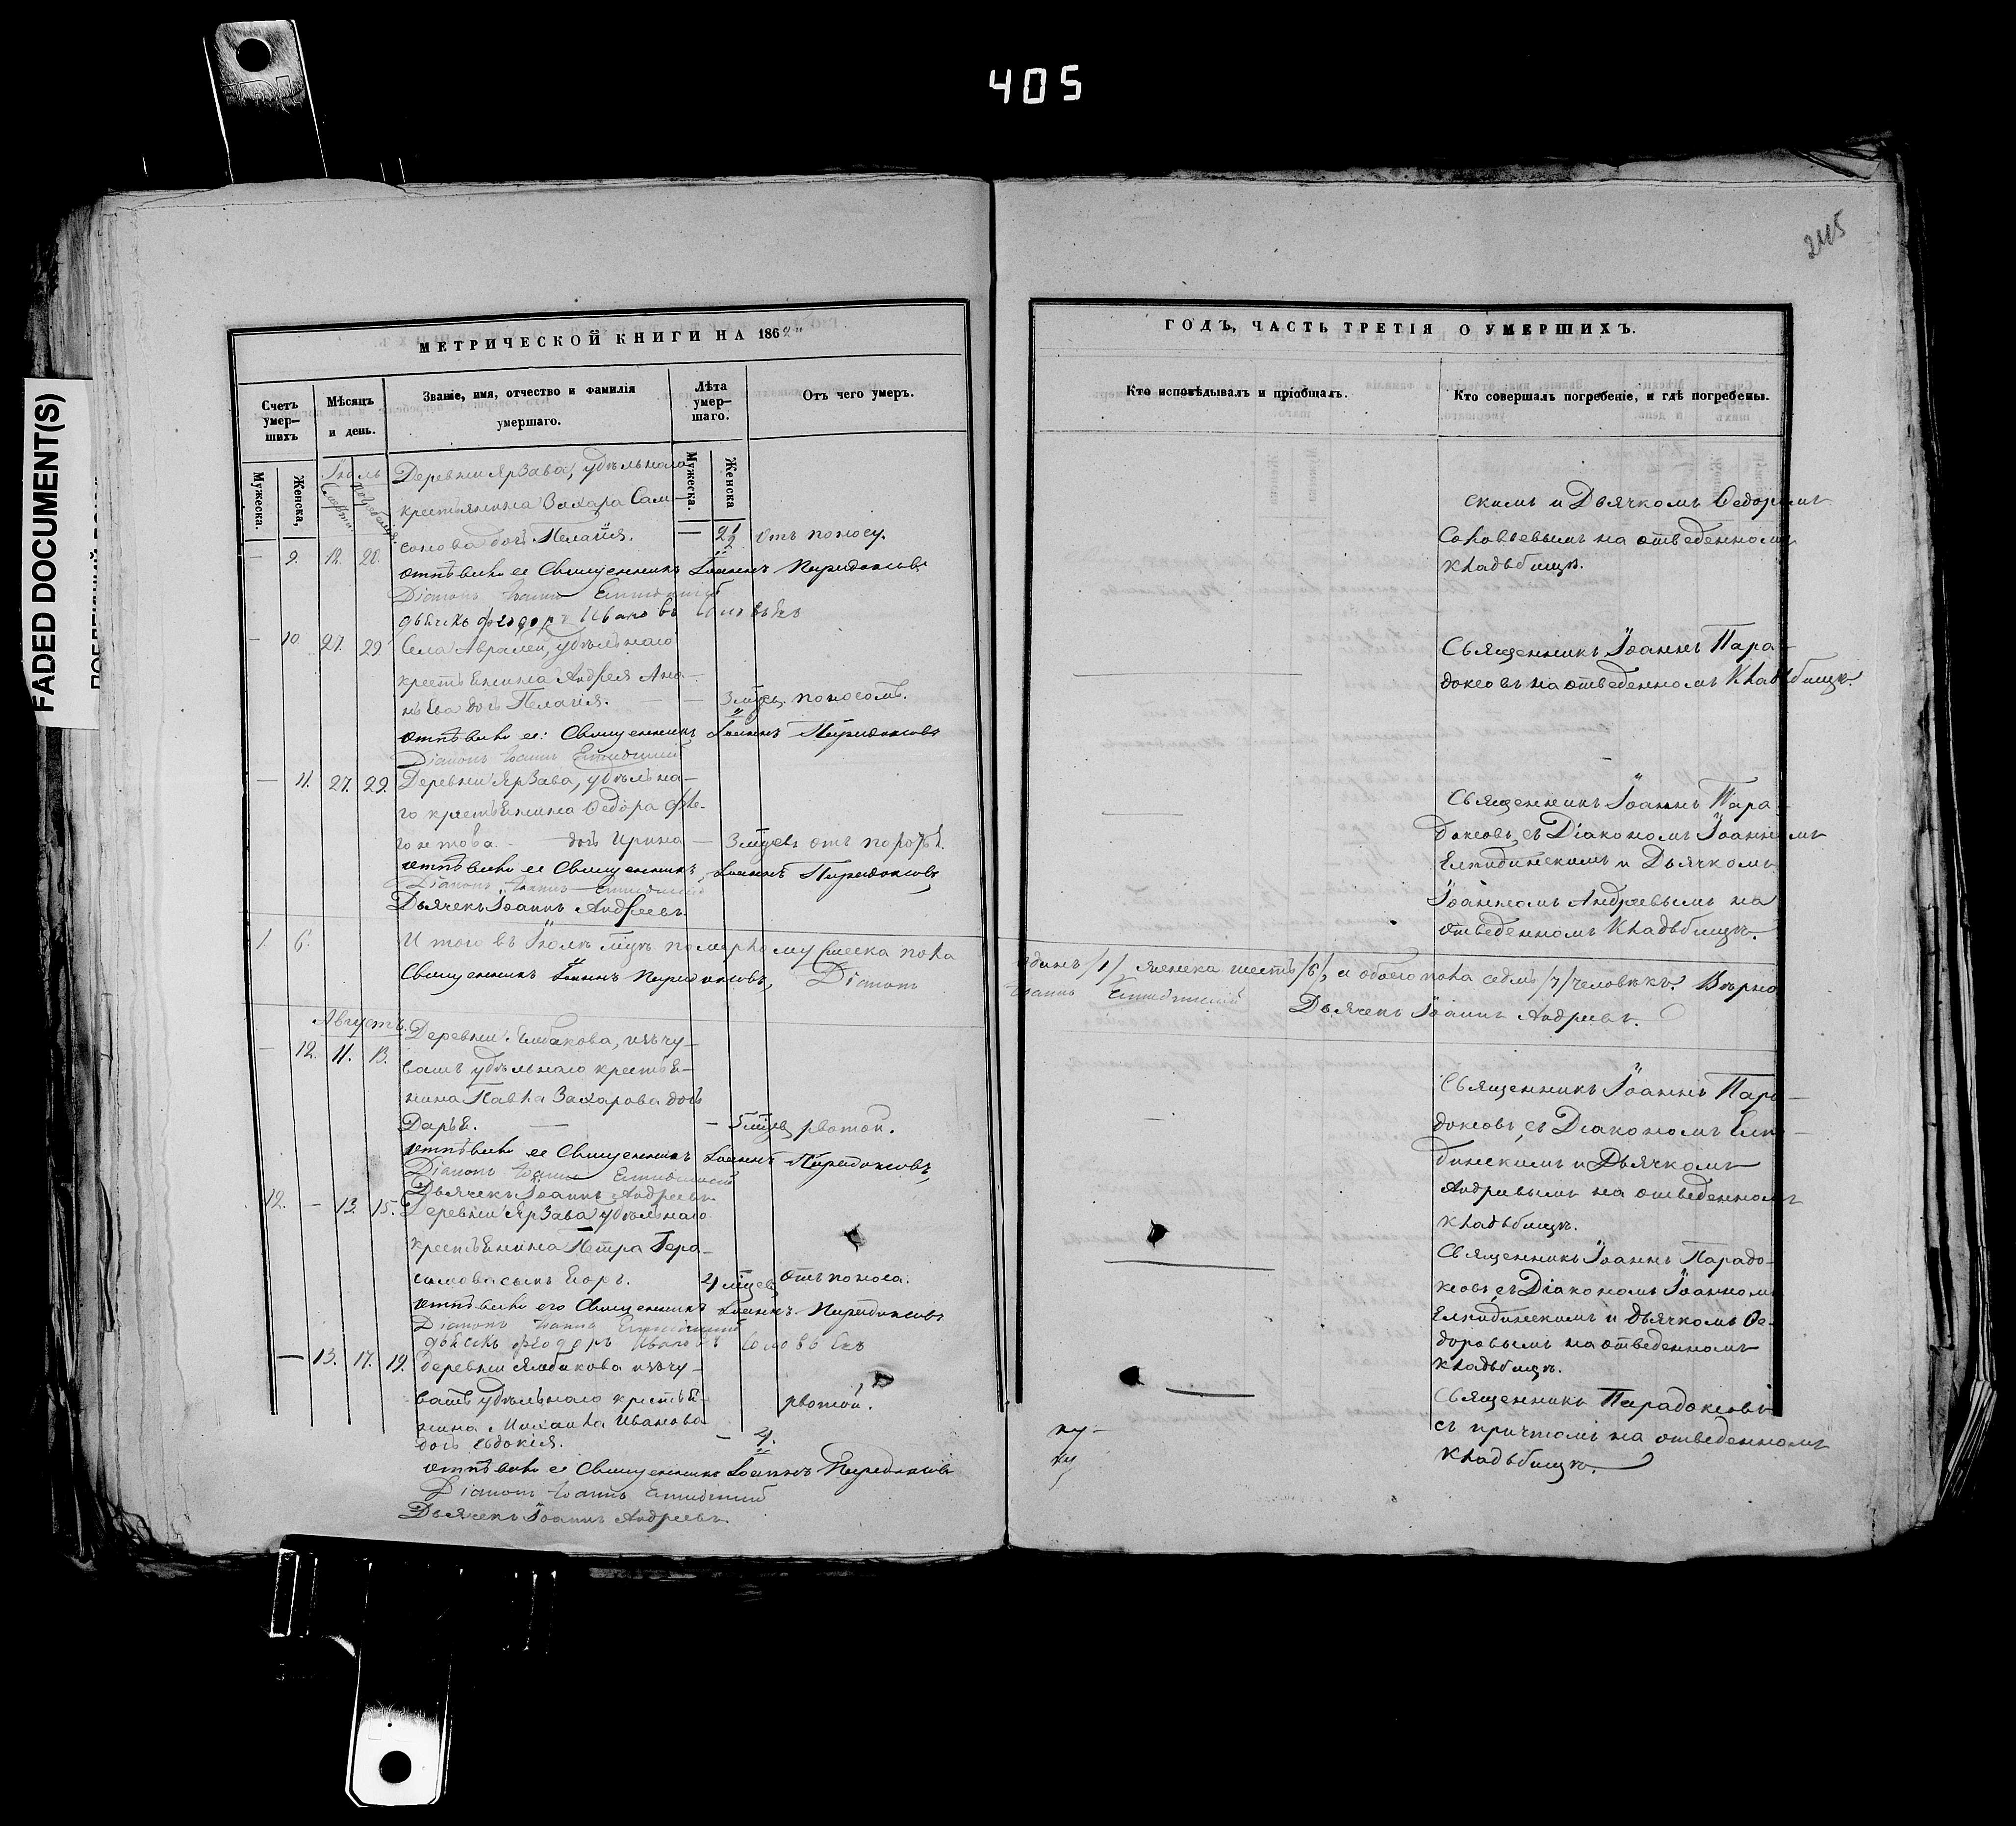 405
245
FADED DOCUMENT(S)
МЕТРИЧЕСКОЙ КНИГИ НА 186
Счетъ умер–шихъ
Мѣсяцъ и день.
Званіе, имя, отчество и фамилія умершаго.
Лѣта умер–шаго.
Отъ чего умеръ.
Мужеска.
Женска,
Мужеска.
Женска
Іюль
Деревни Ярзава, удѣльнаго
крестьянина Захара Сам–
сонова дочь Пелагія. — 2½ отъ поносу.
— 9. 18. 20.
отпѣвалъ ее Священникъ Іоаннъ Парадоксовъ
Діаконъ Іоаннъ Елпидинскій
дьячекъ Феодоръ Ивановъ Соловьевъ
— 10 27. 29 Села Авралей, удѣльнаго
крестьянина Андрея Ана–
ньева дочь Пелагія. — — 3 мѣсец. поносомъ.
отпѣвалъ ее: Священникъ Іоаннъ Парадоксовъ
Діаконъ Іоаннъ Елпидинскій
— 11. 27. 29. Деревни Ярзава, удѣльна–
го крестьянина Федора Фле–
гонтова. — дочь Ирина — 3 мѣсец. отъ
отпѣвалъ ее Священникъ Іоаннъ Парадоксовъ
Діаконъ Іоаннъ Елпидинскій
Дьячекъ Іоаннъ Андреевъ.
1. 6. Итого въ Іюлѣ мцѣ померло мужеска пола
Священникъ Іоаннъ Парадоксовъ, Діаконъ
Августъ.
Деревни Елбакова, изъ чу–
— 12. 11. 13. вашъ удѣльнаго крестья–
нина Павла Захарова дочь
Дарья. — — 5 мѣсец рвотой.
отпѣвалъ ее Священникъ Іоаннъ Парадоксовъ,
Діаконъ Іоаннъ Елпидинскій
Дьячекъ Іоаннъ Андреевъ.
12. — 13. 15. Деревни Ярзава удѣльнаго
крестьянина Петра Гера–
симова сынъ Егоръ. 4 мѣсец отъ поноса.
отпѣвалъ его Священникъ Іоаннъ Парадоксовъ
Діаконъ Іоаннъ Елпидинскій
дьячекъ Феодоръ Ивановъ Соловьевъ
— 13. 17. 19. деревни Ялбакова изъ чу–
вашъ удѣльнаго крестья– рвотой.
нина Михаила Иванова
дочь Евдокія. — 4.
отпѣвалъ ее Священникъ Іоаннъ Парадоксовъ
Діаконъ Іоаннъ Елпидинскій
Дьячекъ Іоаннъ Андреевъ.
ГОДЪ, ЧАСТЬ ТРЕТІЯ О УМЕРШИХЪ.
Кто исповѣдывалъ и пріобщалъ.
Кто совершалъ погребеніе, и гдѣ погребены.
скимъ и Дьячкомъ Федоромъ
Соловьевымъ на отведенномъ
кладбищѣ.
Священникъ Іоаннъ Пара–
доксовъ на отведенномъ кладбищѣ.
Священникъ Іоаннъ Пара–
доксовъ, съ Діакономъ Іоанномъ
Елпидинскимъ и Дьячкомъ
Іоанномъ Андреевымъ на
отведенномъ кладбищѣ.
одинъ /1/ женска шесть /6/, и обоего пола семь /7/ человѣкъ. Вѣрно
Іоаннъ Елпидинскій Дьячекъ Іоаннъ Андреевъ.
Священникъ Іоаннъ Пара–
доксовъ, съ Діакономъ Елпи–
динскимъ и Дьячкомъ
Андреевымъ на отведенномъ
кладбищѣ.
Священникъ Іоаннъ Парадо–
ксовъ, съ Діакономъ Іоанномъ
Елпидинскимъ и дьячкомъ Фе–
доровымъ на отведенномъ
кладбищѣ.
Священникъ Парадоксовъ
съ причтомъ на отведенномъ
кладбищѣ.